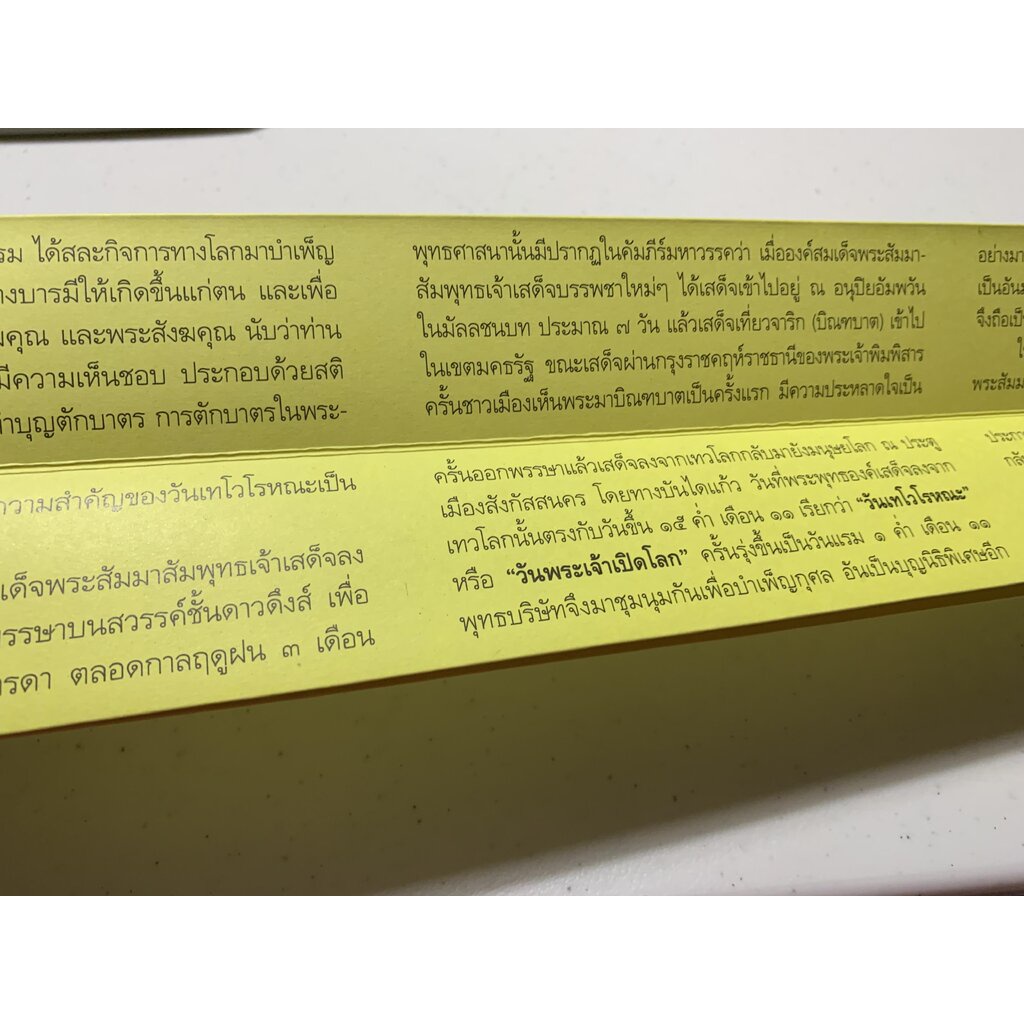 ได้สละกิจการทางโลกมาบำเพ็ญ
บารมีให้เกิดขึ้นแก่ตน และเพื่อ
คุณ และพระสังฆคุณ นับว่าท่าน
มีความเห็นชอบ ประกอบด้วยสติ
บุญตักบาตร การตักบาตรในพระ-
พุทธศาสนานั้นมีปรากฏในคัมภีร์มหาวรรคว่า เมื่อองค์สมเด็จพระสัมมา-
สัมพุทธเจ้าเสด็จบรรพชาใหม่ๆ ได้เสด็จเข้าไปอยู่ ณ อนุปิยอัมพวัน
ในมัลลชนบท ประมาณ ๗ วัน แล้วเสด็จเที่ยวจาริก (บิณฑบาต) เข้าไป
ในเขตมคธรัฐ ขณะเสด็จผ่านกรุงราชคฤห์ราชธานีของพระเจ้าพิมพิสาร
ครั้นชาวเมืองเห็นพระมาบิณฑบาตเป็นครั้งแรก มีความประหลาดใจเป็น
อย่างมา
เป็นอัน
จึงถือเป็
พระสัมม
ความสำคัญของวันเทโวโรหณะเป็น
เด็จพระสัมมาสัมพุทธเจ้าเสด็จลง
พรรษาบนสวรรค์ชั้นดาวดึงส์ เพื่อ
ารดา ตลอดกาลฤดูฝน ๓ เดือน
ครั้นออกพรรษาแล้วเสด็จลงจากเทวโลกกลับมายังมนุษยโลก ณ ประตู
เมืองสังกัสสนคร โดยทางบันไดแก้ว วันที่พระพุทธองค์เสด็จลงจาก
เทวโลกนั้นตรงกับวันขึ้น ๑๕ ค่ำ เดือน ๑๑ เรียกว่า “วันเทโวโรหณะ”
หรือ “วันพระเจ้าเปิดโลก” ครั้นรุ่งขึ้นเป็นวันแรม ๑ ค่ำ เดือน ๑๑
พุทธบริษัทจึงมาชุมนุมกันเพื่อบำเพ็ญกุศล อันเป็นบุญนิธิพิเศษอีก
ประกา
กลั